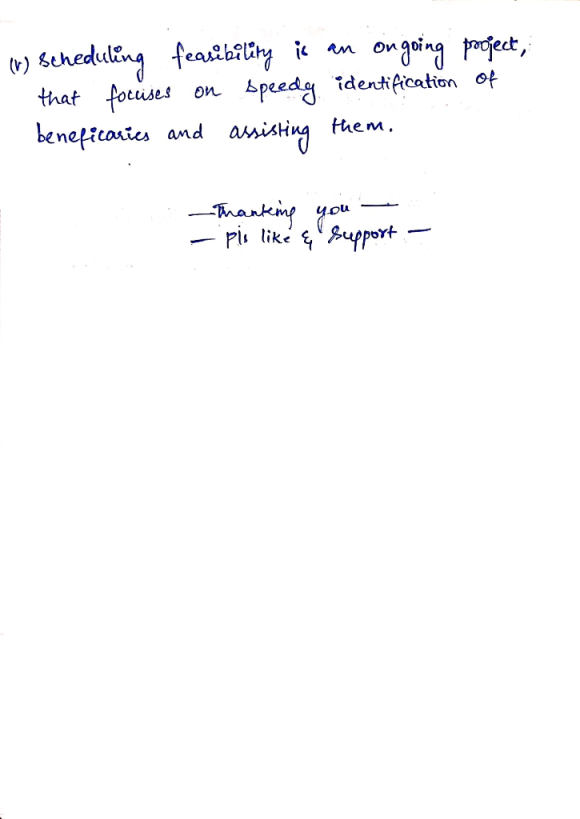 (v) Scheduling feasibility is an ongoing project,
that focuses on speedy identification of
beneficaries and assisting them.
— Thanking you —
— Pls like & Support —